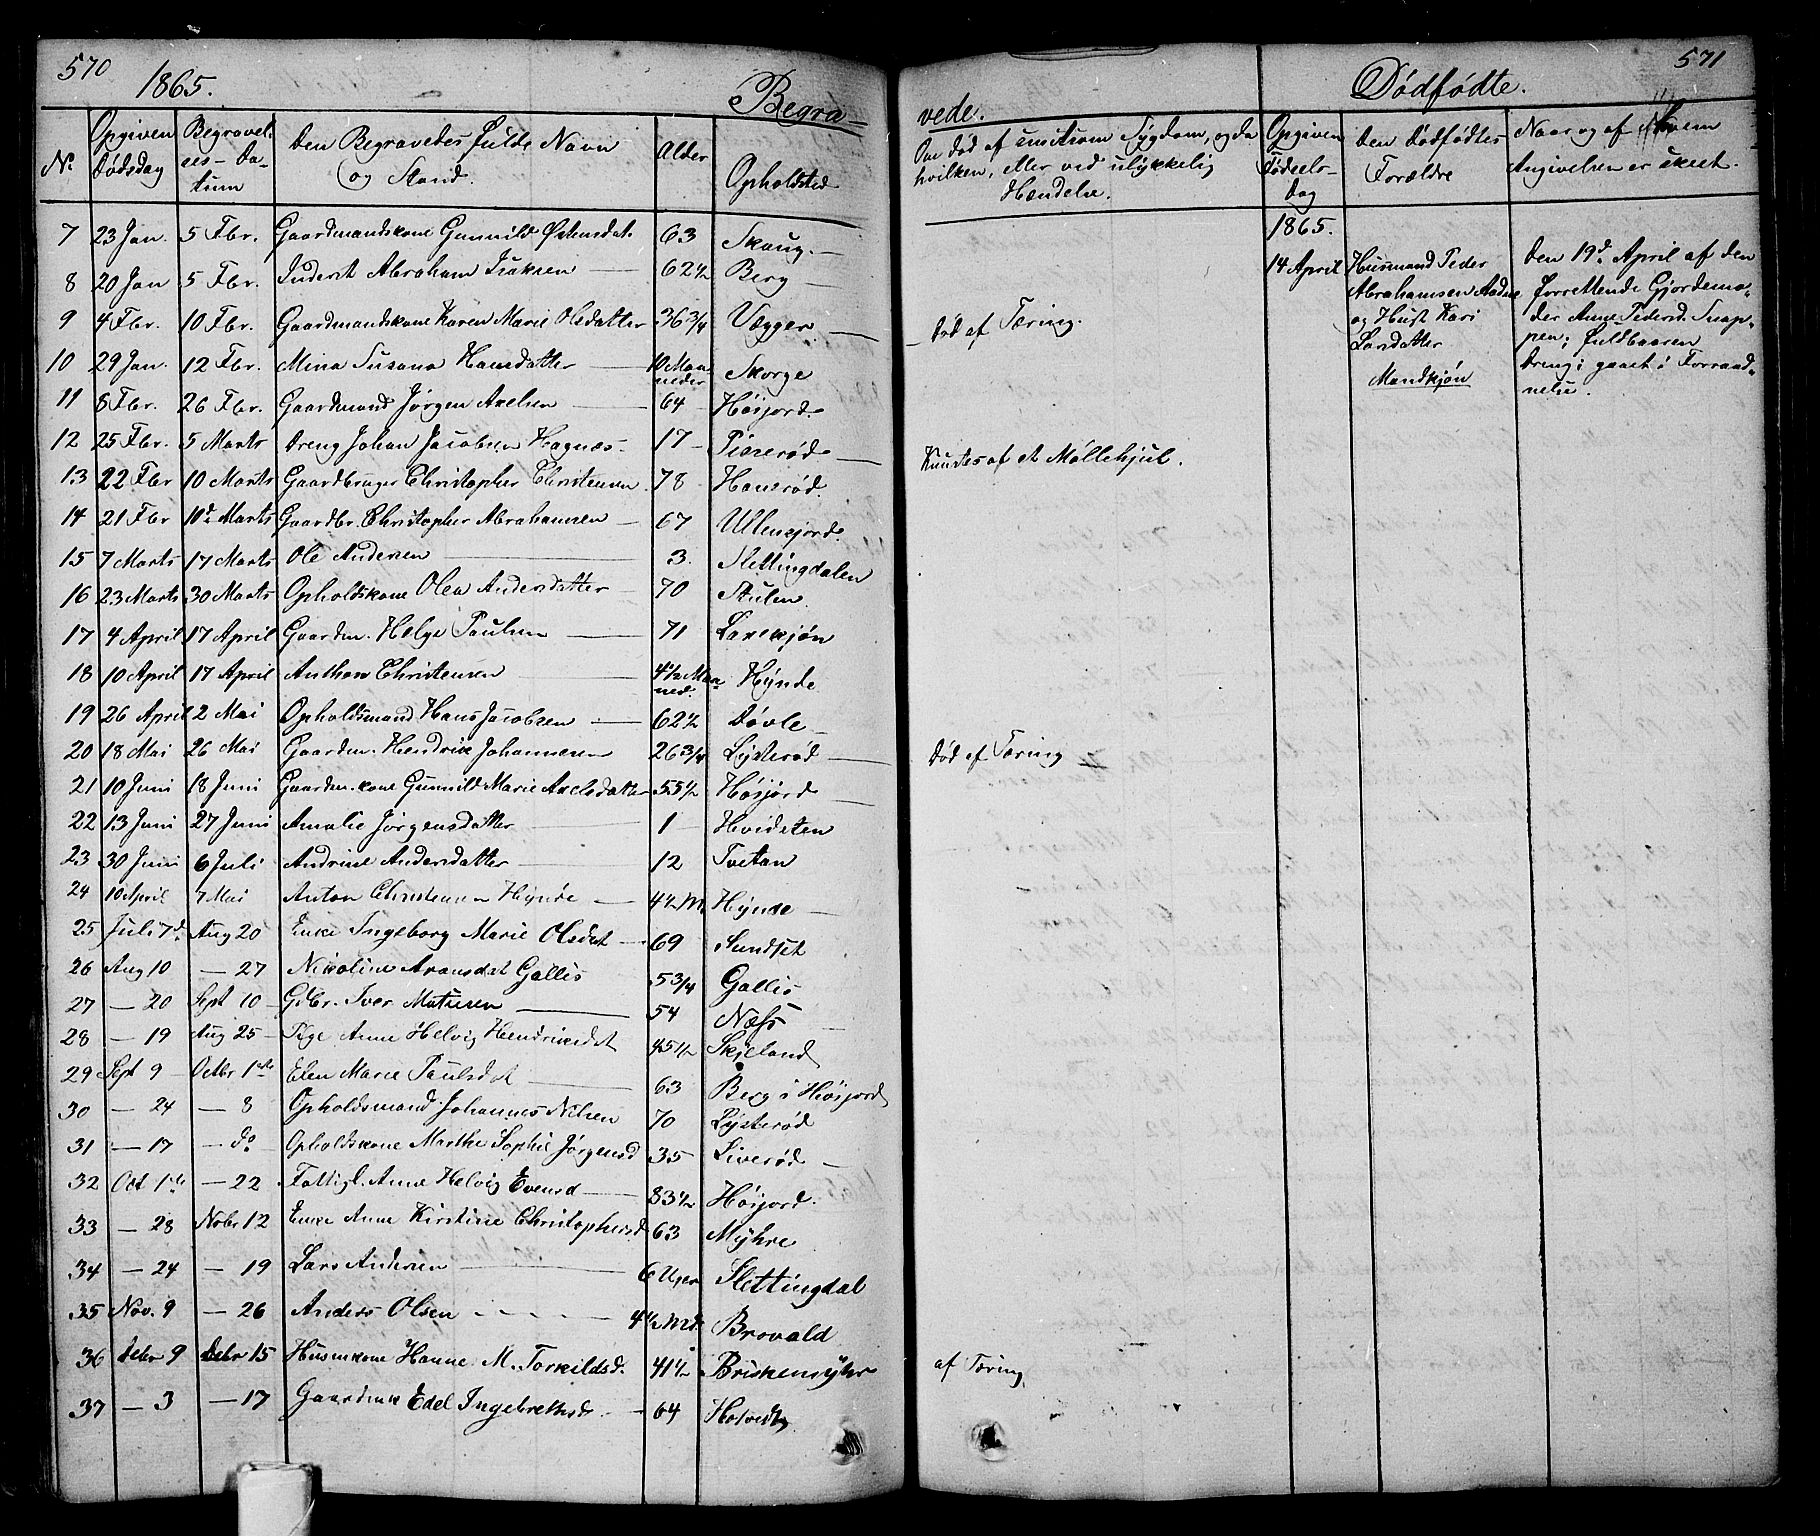 570
1865.
Begra-
No
Opgiven Dødsdag
Begravel-ses-Da-tum
Den Begravedes fulde Navn og Stand.
Alder
Opholdsted
7 23 Jan. 5 Fbr. Gaardmandskone Gunnild Østensdat. 63 Skaug.
8 20 Jan 5 Fbr. Inderst Abraham Isaksen 62½ Berg
9 4 Fbr. 10 Fbr. Gaardmandskone Karen Marie Olsdatter 36 3/4 Vegger
10 29 Jan. 12 Fbr. Mina Susana Hansdatter 10 Maaneder Skorge
11 8 Fbr. 26 Fbr. Gaardmand Jørgen Axelsen 64 Høsjord
12 25 Fbr. 5 Marts Dreng Johan Jacobsen Hagnæs 17 Pisserød
13 22 Fbr 10 Marts Gaardbruger Christopher Christensen 78 Hanerød.
14 21 Fbr 10d Marts Gaardbr. Christopher Abrahamsen 67 Ullensjord
15 7 Marts 17 Marts Ole Andersen 3. Slettingdalen
16 23 Marts 30 Marts Opholdskone Olea Andersdatter 70 Stulen
17 4 April 17 April Gaardm. Helge Paulsen 71 Laxesjøn
18 10 April 17 April Anthon Christensen 4½ Maaned. Hynde
19 26 April 2 Mai Opholdsmand Hans Jacobsen 62½ Døvle
20 18 Mai 26 Mai Gaardm. Hendrik Johannesen 26 3/4 Lysterød
21 10 Juni 18 Juni Gaardm. kone Gunnild Marie Axelsdatter 55½ Høsjord
22 13 Juni 27 Juni Amalie Jørgensdatter 1 Hvidsten
23 30 Juni 6 Juli Andrine Andersdatter 12 Tvetan
24 10 April 7 Mai Anton Christensen Hynde 4½ M. Hynde
25 Juli 7d. Aug 20 Enke Ingeborg Marie Olsdat 69 Sundset
26 Aug 10 — 27 Nikoline Aronsdat Gallis 5 3/4 Gallis
27 — 20 Sept 10 Gdbr. Iver Matisen 54 Næss
28 — 19 Aug 25 Pige Anne Helvig Hendriksdat 45½ Skjeland
29 Sept 9 Octbr 1ste Elen Marie Paulsdat 63 Berg i Høsjord
30 — 24 — 8 Opholdsmand Johannes Nilsen 70 Lysterød
31 — 17 — do Opholdskone Marthe Sophie Jørgensd 35 Liverød
32 Oct 1ste — 22 Fattigl. Anne Helvig Evensd 83½ Høsjord
33 — 28 Nobr 12 Enke Anne Kirstine Christophersd 63 Myhre
34 — 24 — 19 Lars Andersen 6 Uger Slettingdal
35 Nov. 9 — 26 Anders Olsen 4½ Md. Brovald
36 Debr 9 Debr 15 Husmkone Hanne M. Torkildsd. 41½ Briskemyhr
37 — 3 — 17 Gaardmk Edel Ingebrethsd. 64 Holvedt
571
vede.
Dødfødte.
Om død af smitsom Sygdom, og da
hvilken, eller ved ulykkelig
Hændelse.
Opgiven Fødsels-Dag
Den Dødfødtes Forældre
Naar og af Hvem Angivelsen er skeet.
Død af Tæring.
Knustes af et Møllehjul.
Død af Tæring
af Tæring
1865.
14 April
Husmand Peder
Abrahamsen Aadne
og Hust. Kari
Larsdatter
Mandkjøn
Den 19d. April af den
forrettende Gjordemo-
der Anne Pedersd. Snap-
pen; fuldbaaren
Dreng; gaaet i Forraad-
nelse.